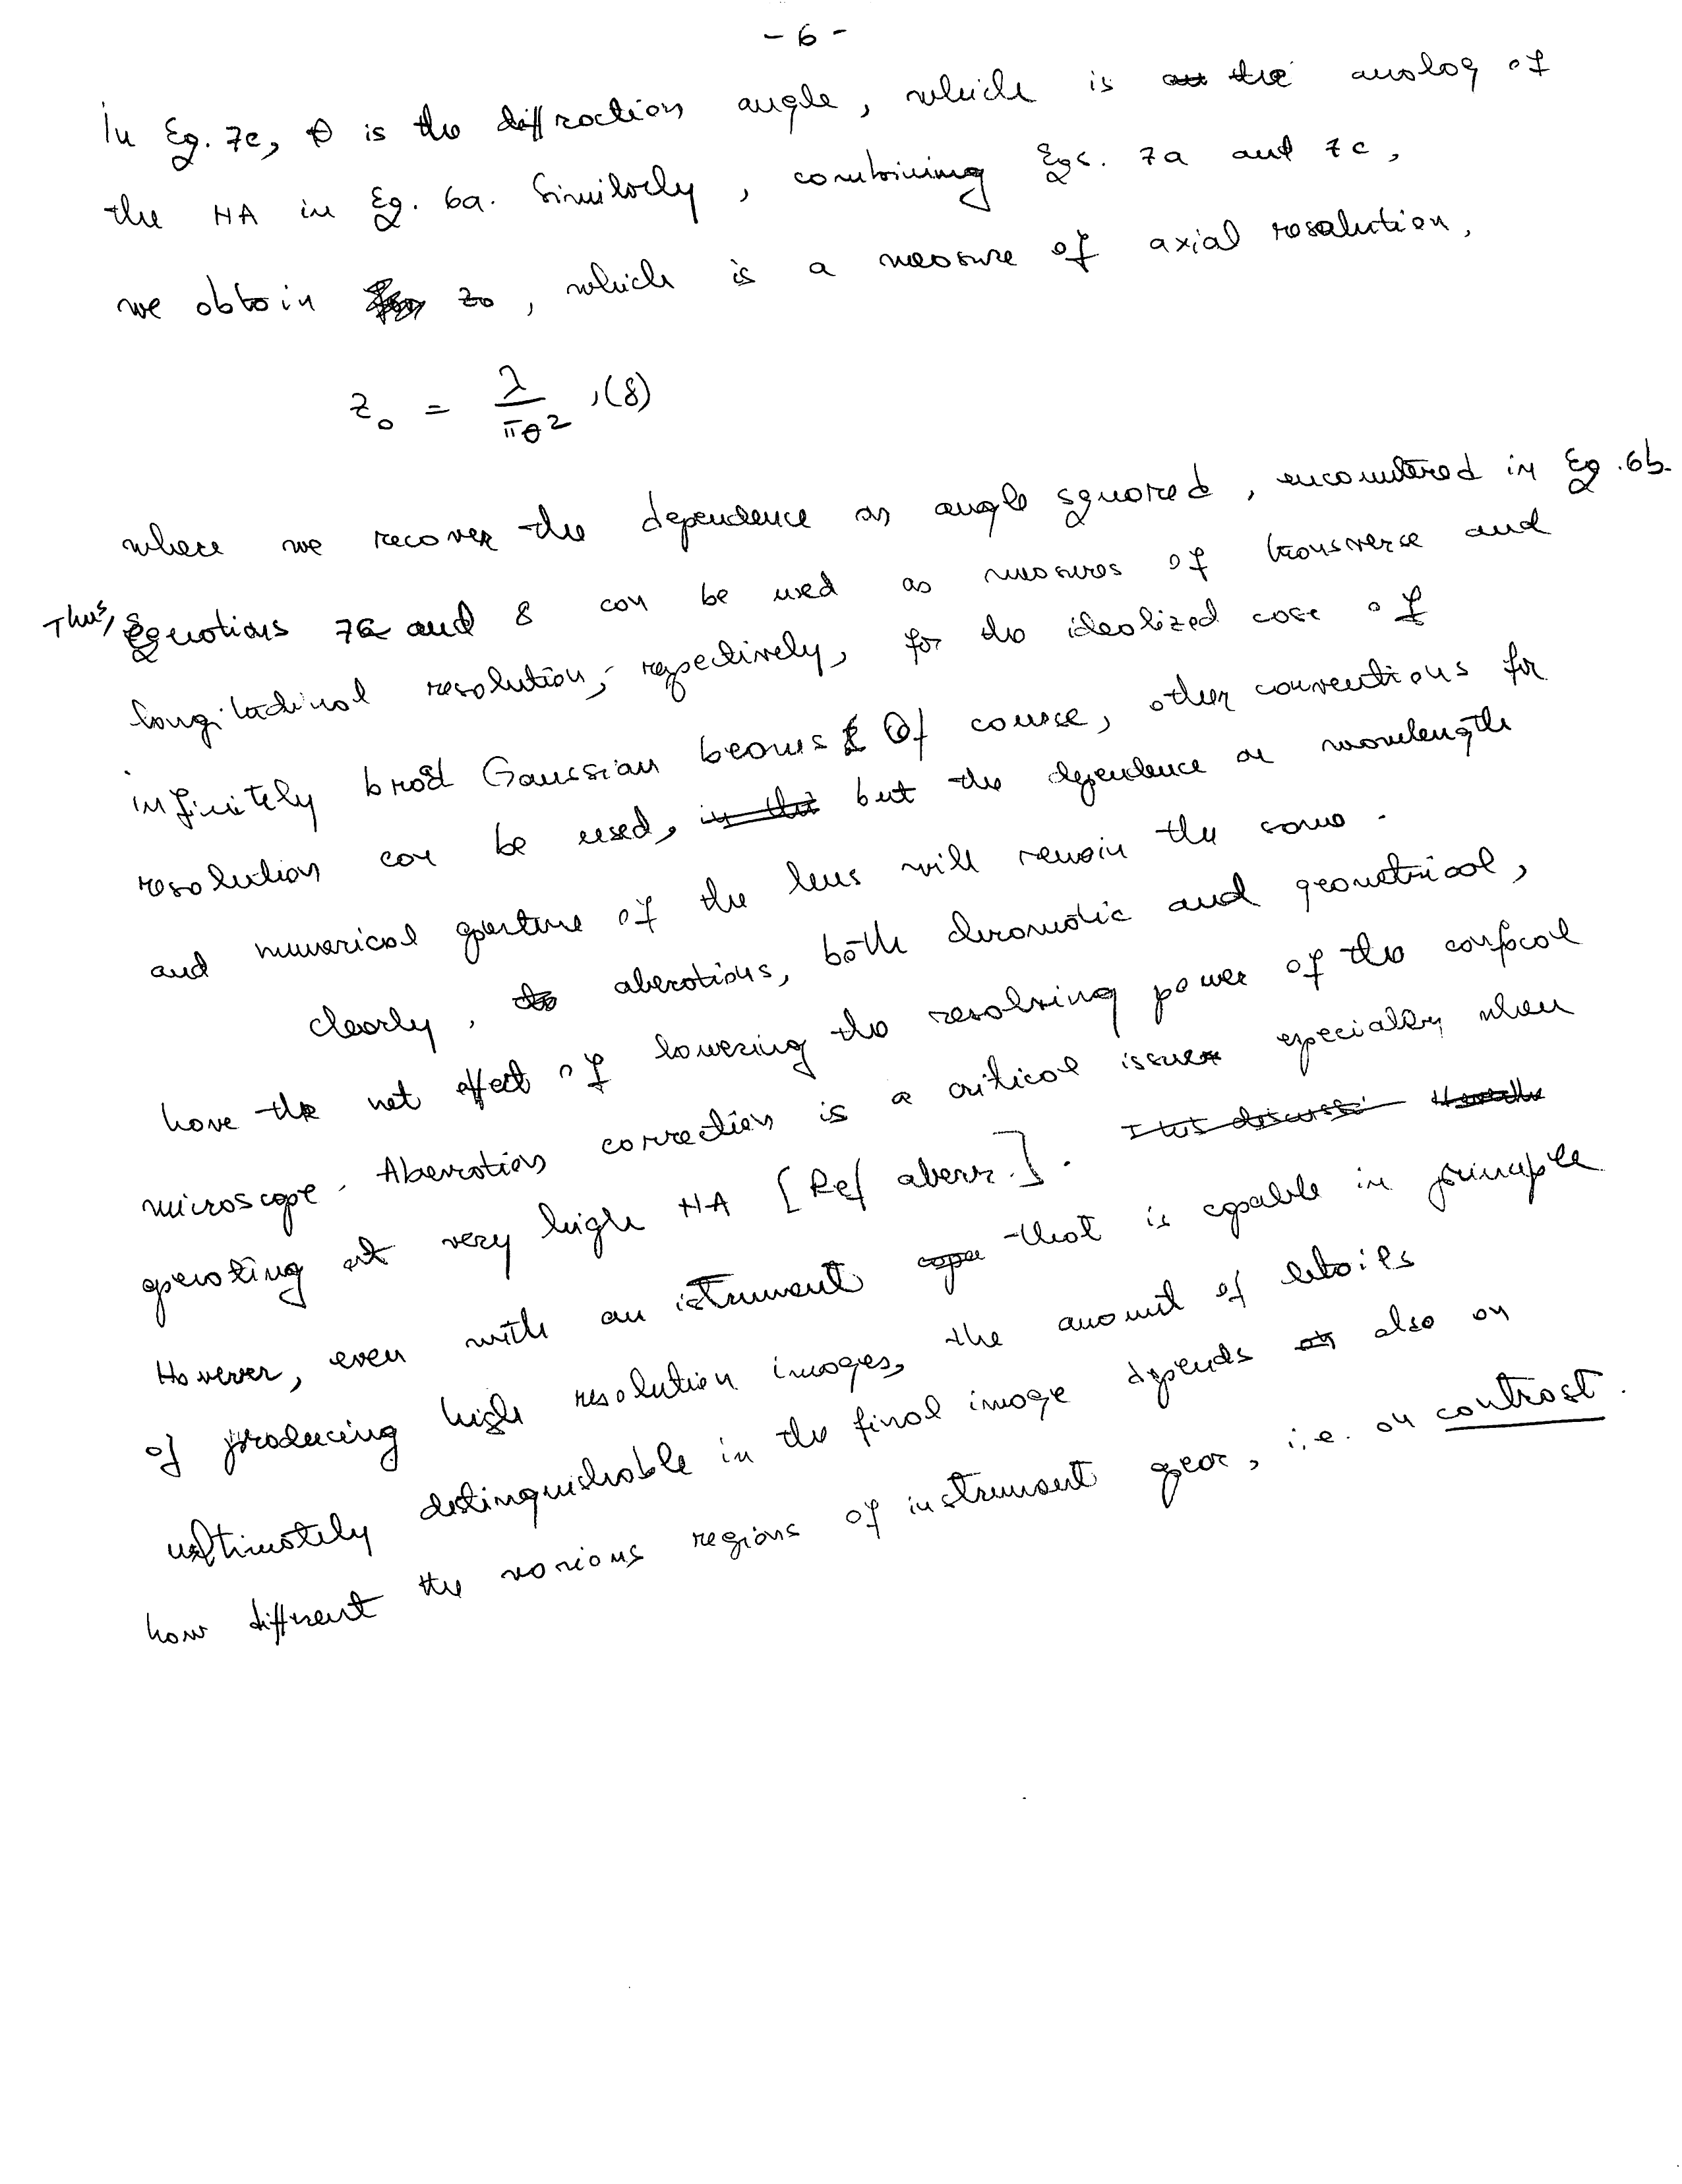 - 6 -
In Eq. 7c, θ is the diffraction angle, which is the analog of
the NA in Eq. 6a. Similarly, combining Eqs. 7a and 7c,
we obtain z₀, which is a measure of axial resolution,
z₀ = λ / πθ² , (8)
where we recover the dependence on angle squared, encountered in Eq. 6b.
Thus, Equations 7c and 8 can be used as measures of transverse and
longitudinal resolution, respectively, for the idealized case of
infinitely broad Gaussian beams. Of course, other conventions for
resolution can be used, but the dependence on wavelength
and numerical aperture of the lens will remain the same.
Clearly, aberrations, both chromatic and geometrical,
have the net effect of lowering the resolving power of the confocal
microscope. Aberration correction is a critical issue especially when
operating at very high NA [Ref aberr.].
However, even with an istrument that is capable in principle
of producing high resolution images, the amount of details
ultimately distinguishable in the final image depends also on
how different the various regions of instrument gear, i.e. on contrast.